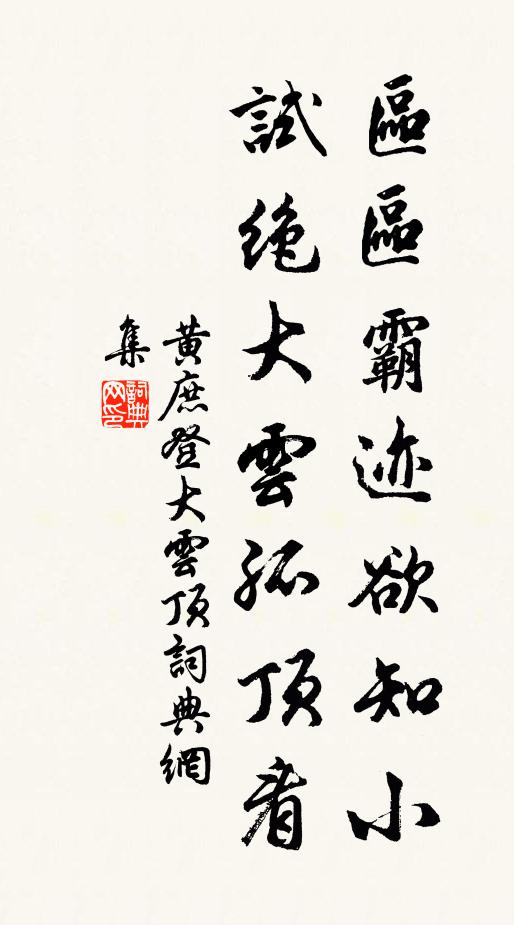 區區霸迹欲知小
試絶大雲孤頂看
黄庶登大雲頂詞典網
集
詞典
网印